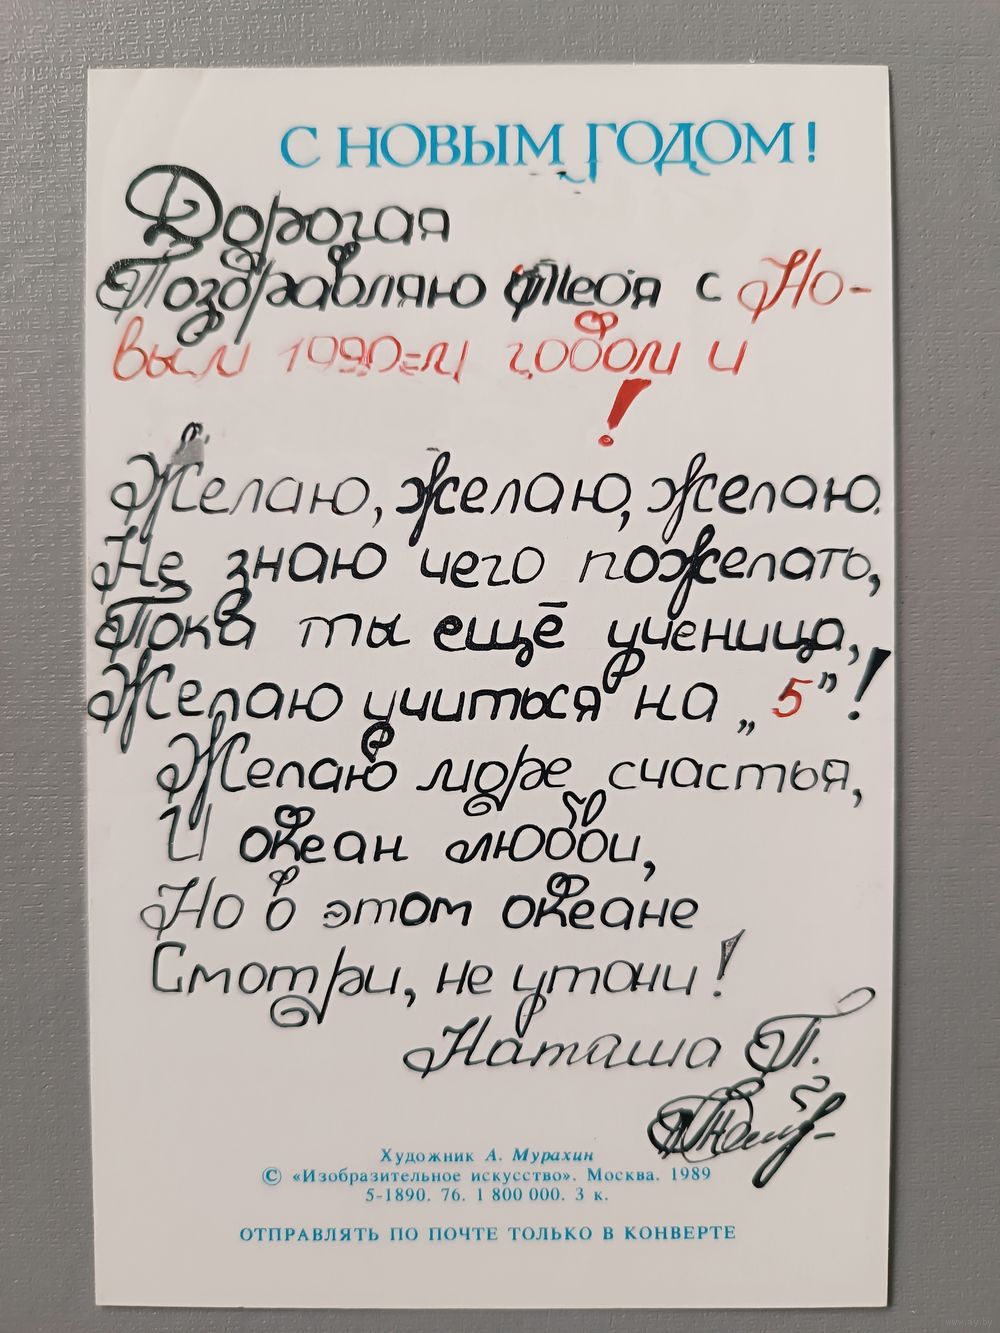 С НОВЫМ ГОДОМ!
Дорогая
Поздравляю Тебя с Но-
вым 1990-м годом и
!
Желаю, желаю, желаю.
Не знаю чего пожелать,
Пока ты ещё ученица,
Желаю учиться на „5”!
Желаю море счастья,
И океан любви,
Но в этом океане
Смотри, не утони!
Наташа П.
Художник А. Мурахин
© «Изобразительное искусство». Москва. 1989
5-1890. 76. 1 800 000. 3 к.
ОТПРАВЛЯТЬ ПО ПОЧТЕ ТОЛЬКО В КОНВЕРТЕ
www.ay.by